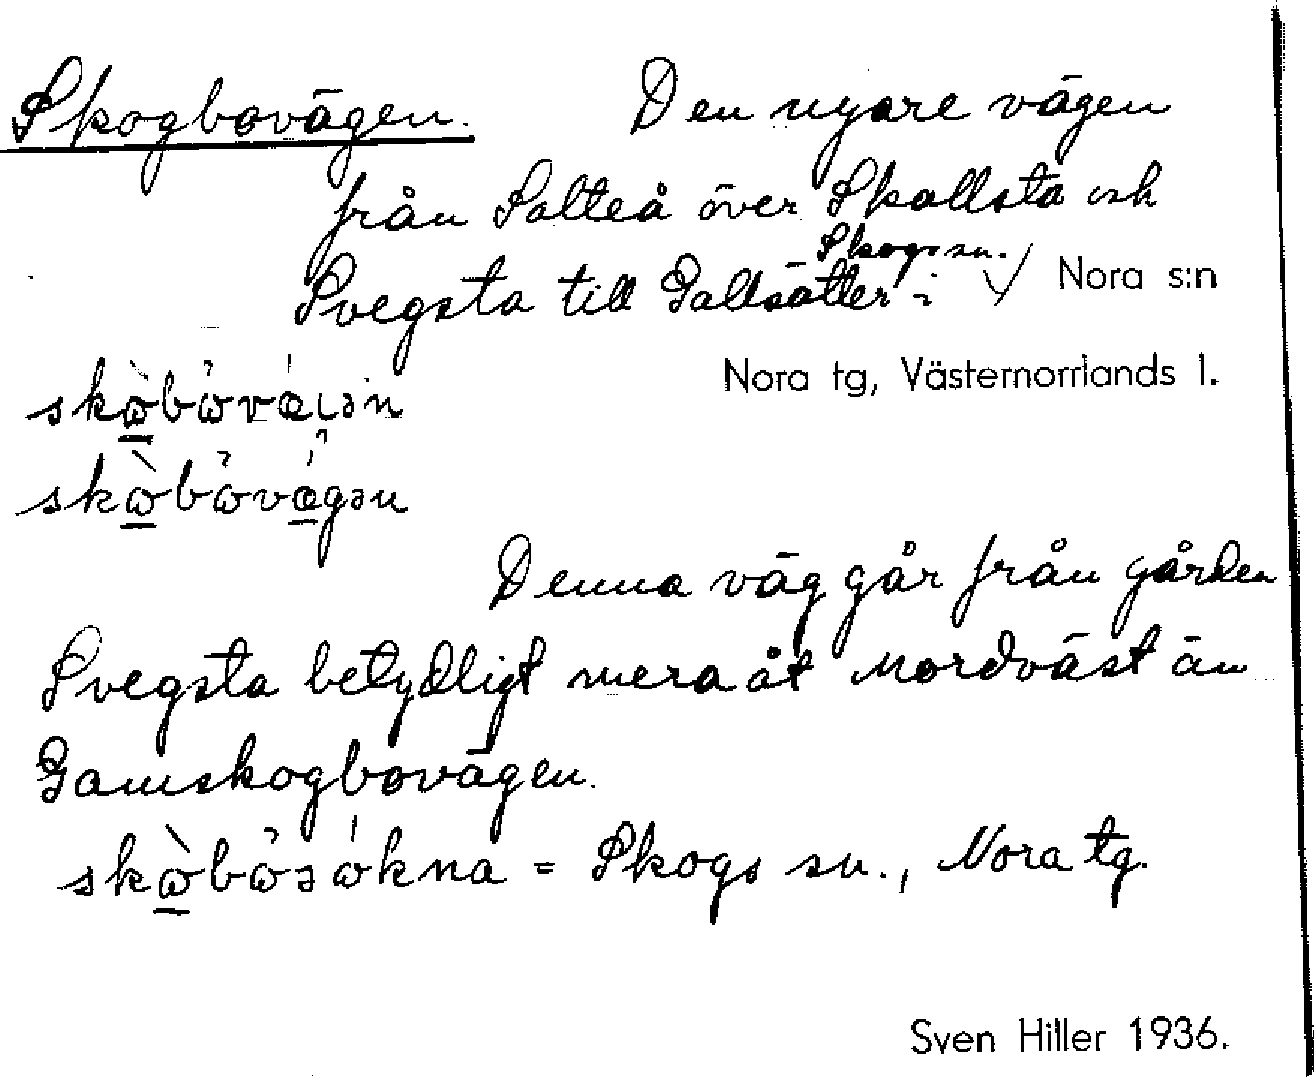 Skogbovägen. Den nyare vägen
från Salteå över Skallsta och
Skogs sn.
Svegsta till Gallsätter i Nora s:n
Nora tg, Västernorrlands l.
Denna väg går från gården
Svegsta betydligt mera åt nordväst än
Gamskogbovägen.
= Skogs sn., Nora tg.
Sven Hiller 1936.